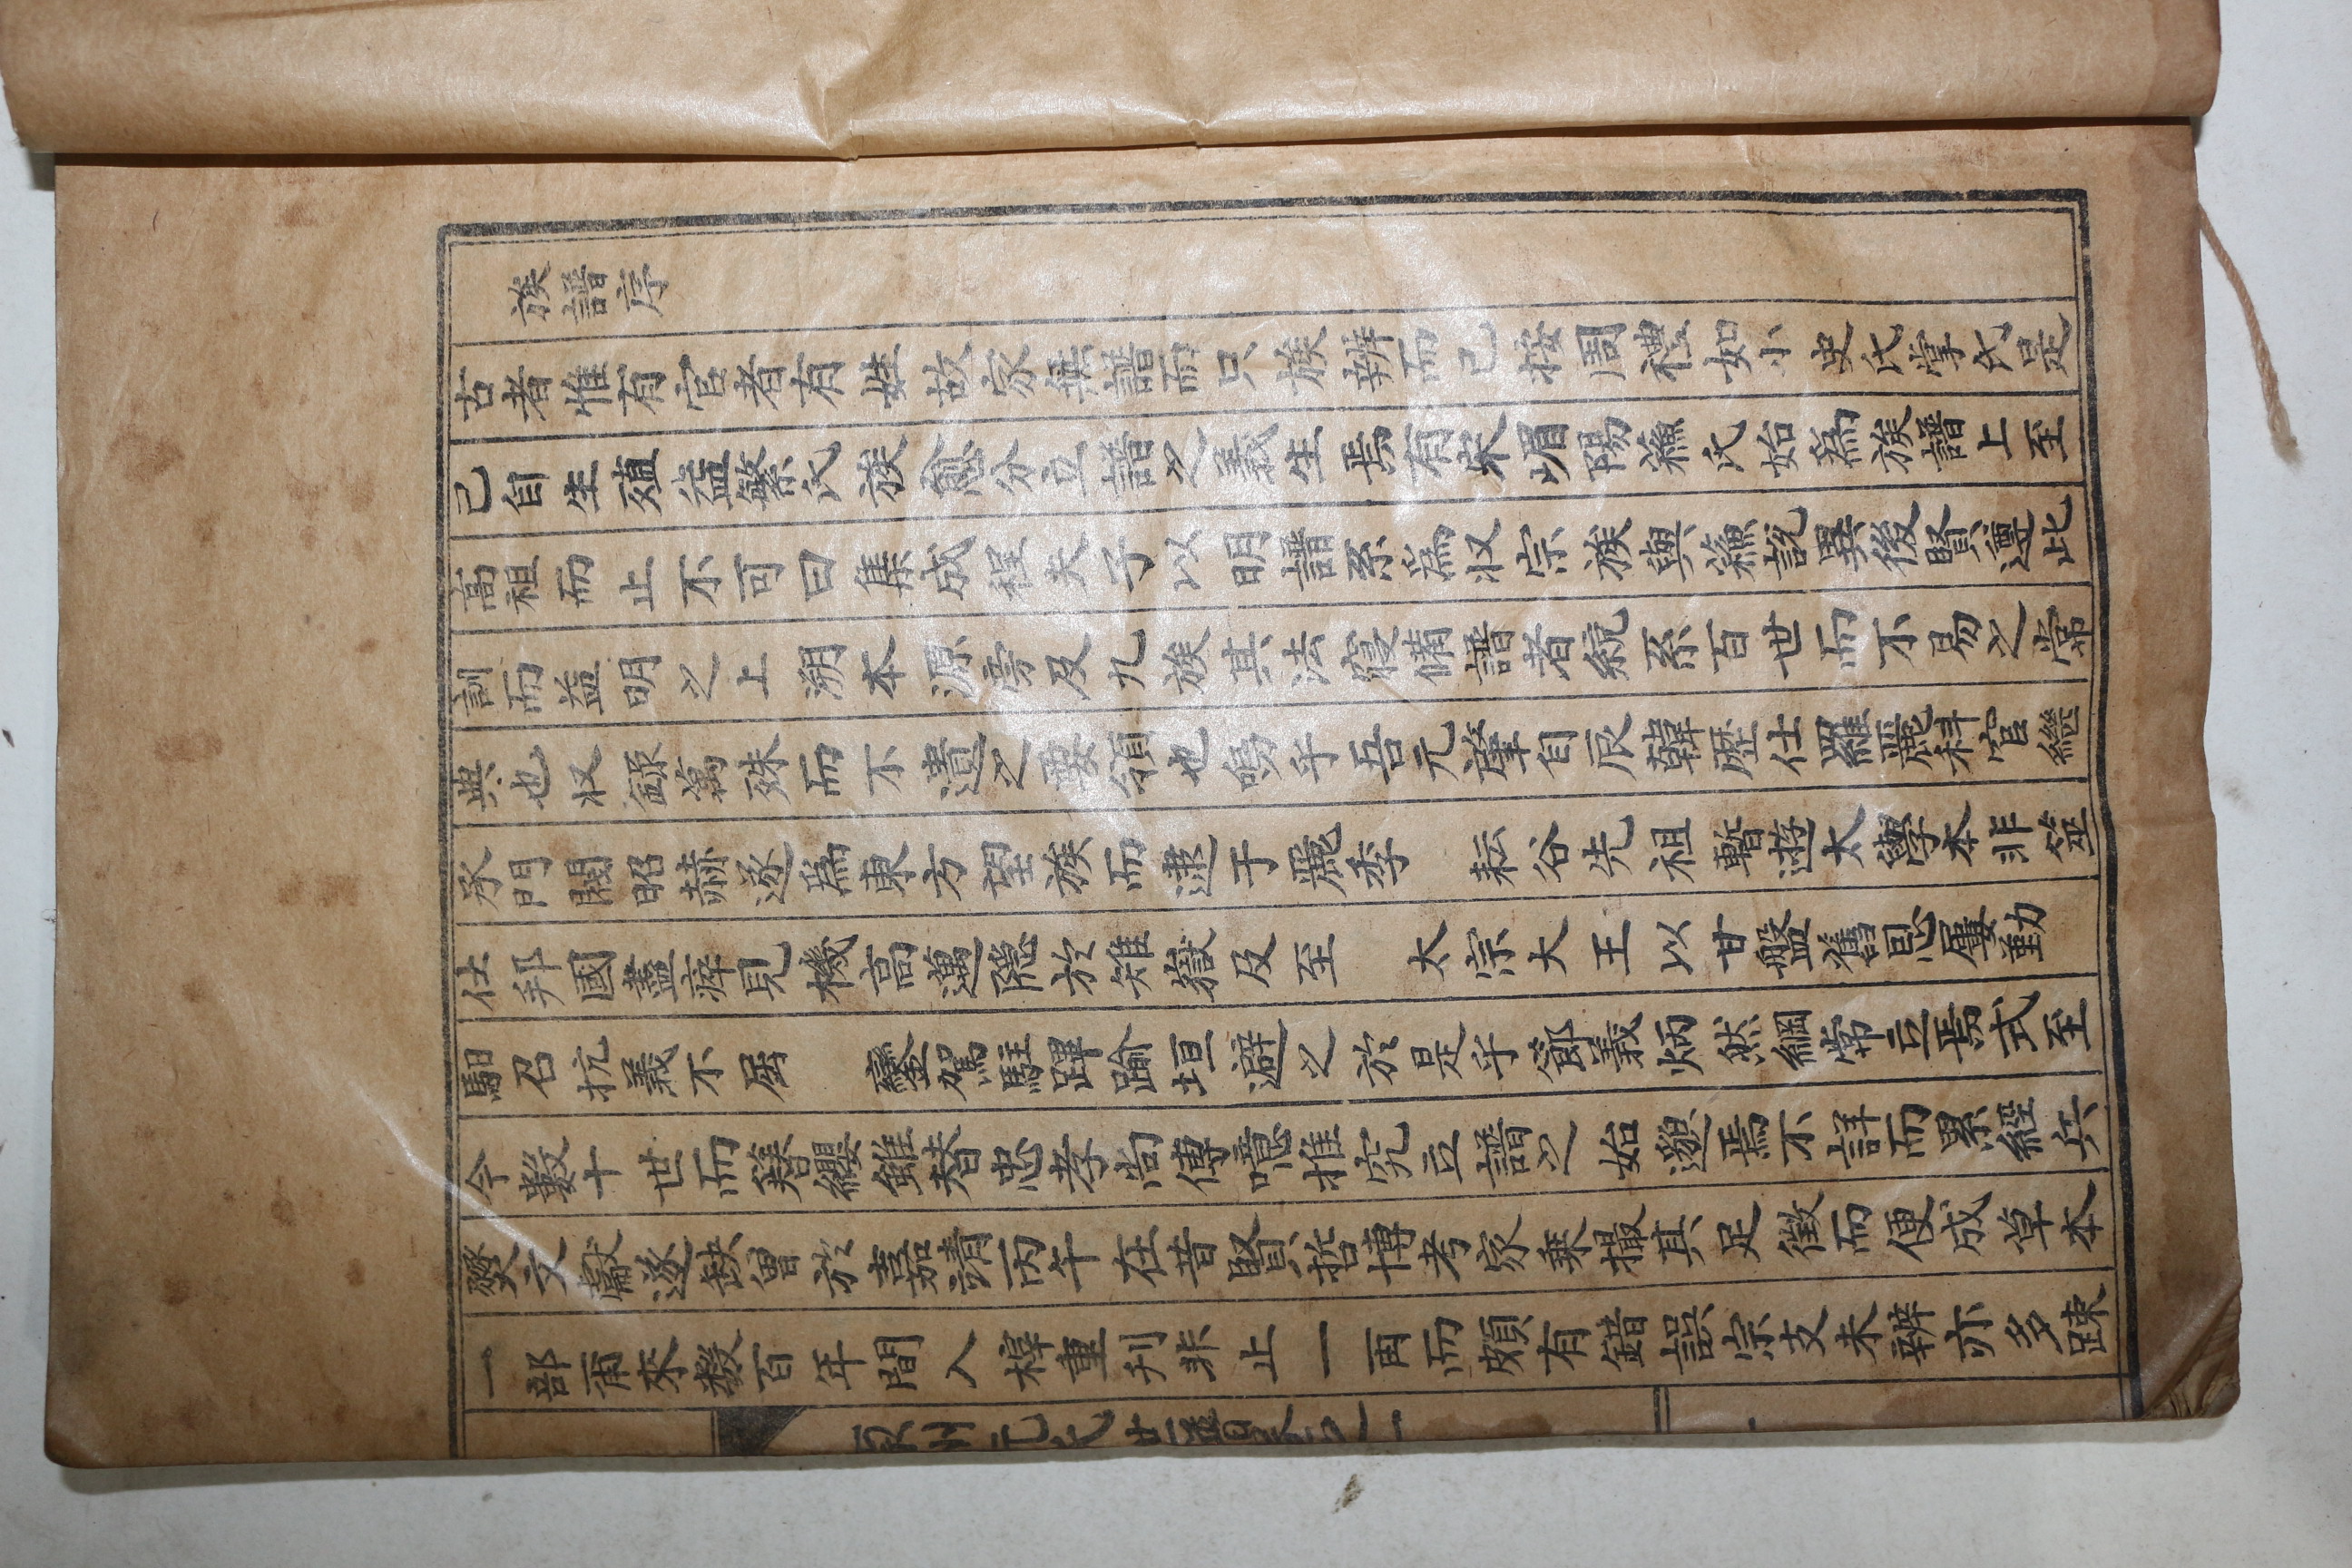 族譜序
古者惟有官者有姓故家無譜而只族辨而已按周禮如小史氏掌氏是
已自生殖益繁氏族愈分立譜之義生焉有宋嵋陽蘓氏始爲族譜上至
高祖而止不可曰集成程夫子以明譜系爲收宗族與蘓說異後賢遵此
訓而益明之上溯本源旁及九族其法寖備譜者統系百世而不易之常
典也収錄萬殊而不遺之要領也嗚乎吾元肇自辰韓歷仕羅麗科官繼
承門閥昭赫遂爲東方望族而逮于麗季 耘谷先祖暫遊太學本非筮
仕邦國盡瘁見機高邁隱於雉嶽及至 太宗大王以甘盤舊恩屢勤
馹召抗義不屈 鑾駕駐蹕踰垣避之於是乎節義炳然綱常立焉式至
今數十世而簪纓雖替忠孝尚傳噫推究立譜之始邈焉不詳而累經兵
燹文獻遂缺曾於嘉靖丙午在昔賢哲博考家乘撮其足徵而便成草本
一部甭來數百年間入梓重刋非止一再而頗有錯誤宗支未辨亦多踈
原州元氏世譜卷之一